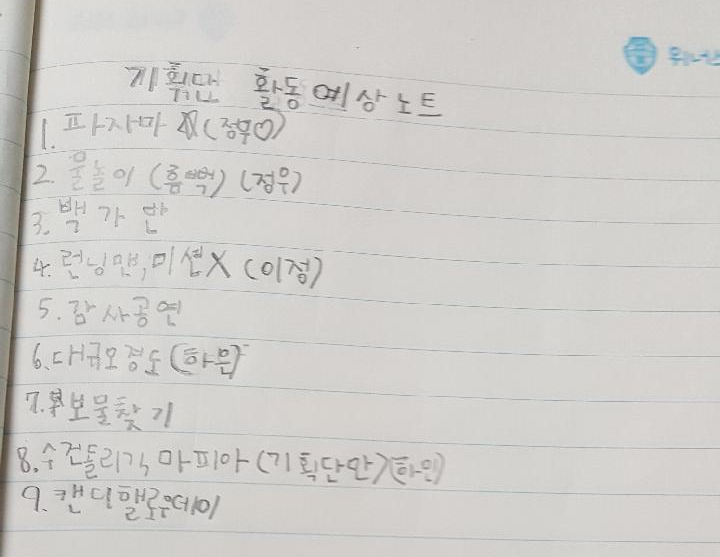 위너스
기획단 활동 예상 노트
1. 파자마 (정우♡)
2. 물놀이 (흠뻑) (정우)
3. 백가반
4. 런닝맨, 미션X (이정)
5. 감사공연
6. 대규모경도 (하은)
7. 보물찾기
8. 수건돌리기, 마피아 (기획단만) (하민)
9. 캔디핼로우데이